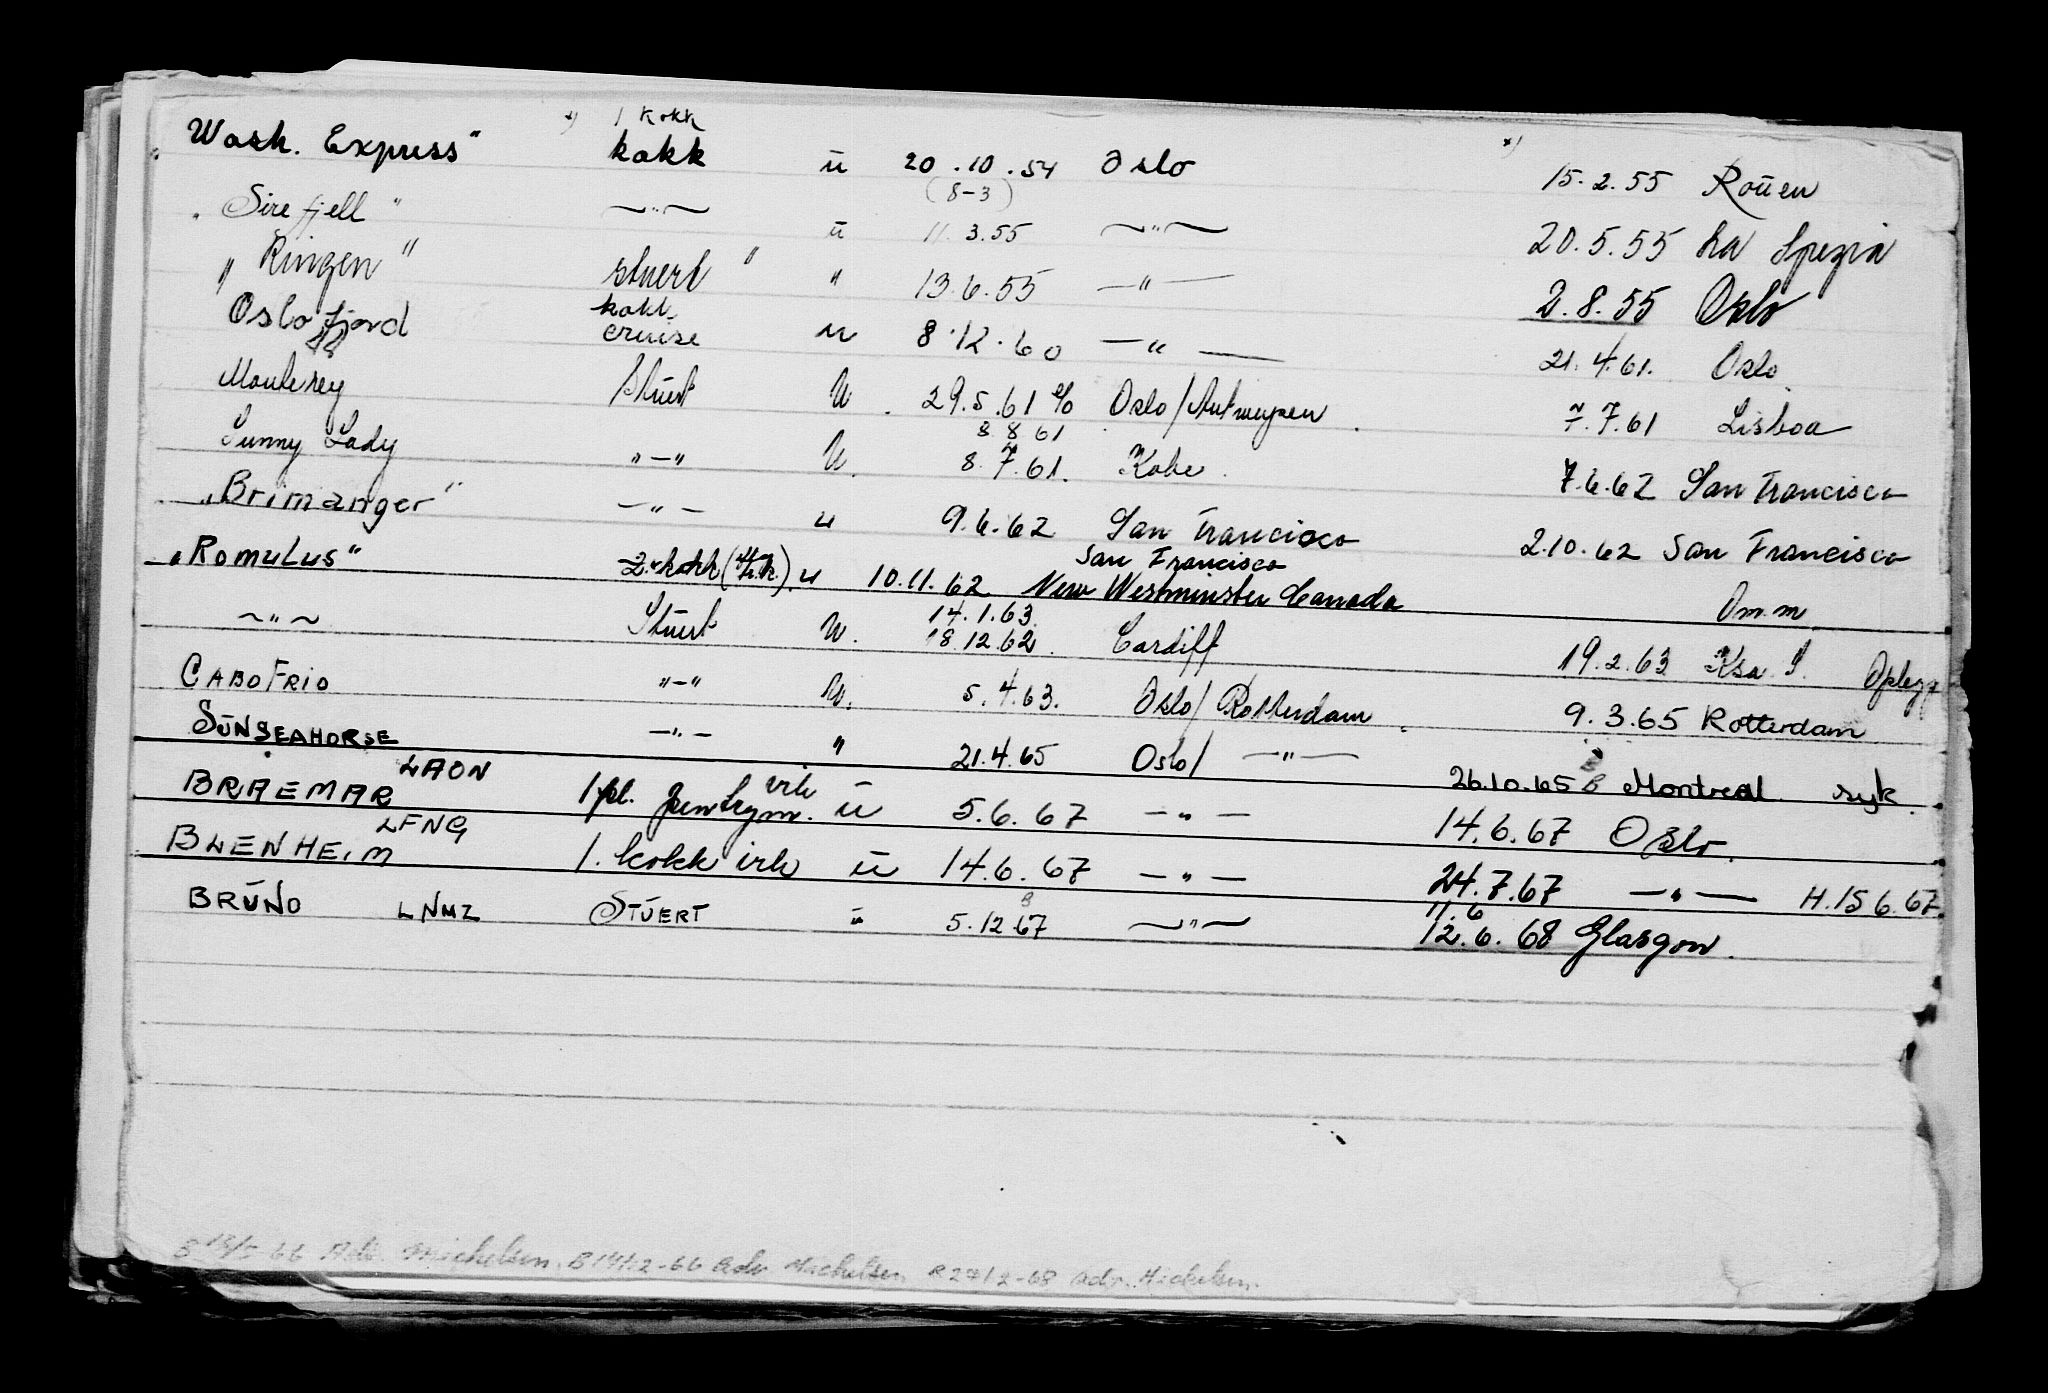 x) 1 kokk
„Wash. Express" kokk ü 20.10.54 Oslo x) 15.2.55 Roüen
(8-3)
„Sirefjell" —"— ü 11.3.55 —"— 20.5.55 La Spezia
„Ringen" stuert " " 13.6.55 —"— 2.8.55 Oslo
kokk
Oslofjord cruise u 8.12.60 —"— 21.4.61. Oslo
Monterey Stüert U. 29.5.61 % Oslo/Antwerpen. 7.7.61 Lisboa
8 8 61
Sunny Lady "—" U. 8.7.61. Kobe. 7.6.62 San Francisco
„Brimanger" —"— u 9.6.62 San Francisco 2.10.62 San Francisco
San Francisco
„Romulus" 2. kokk (st.k.). u 10.11.62 New Westminster Canada Om.m.
14.1.63.
—"— Stüert U. 18.12.62. Cardiff 19.2.63 Ksa. S. Oplegg
CABO FRIO "—" U. 5.4.63. Oslo/Rotterdam. 9.3.65 Rotterdam
SÜNSEAHORSE —"— " 21.4.65 Oslo/ —"— 26.10.65 B Montreal syk.
BRAEMAR LAON 1 pl. pentrym. vik ü 5.6.67 —"— 14.6.67 Oslo.
BLENHEIM LFNG 1. kokk vik ü 14.6.67 —"— 24.7.67 —"— H.15 6.67.
B 11.6
BRÜNO LNMZ STÜERT ü 5.12.67 —"— 12.6.68 Glasgow.
B 13/5 66 Adv. Michelsen. B 14/12-66 adv Michelsen R 27/2-68 adv. Michelsen.